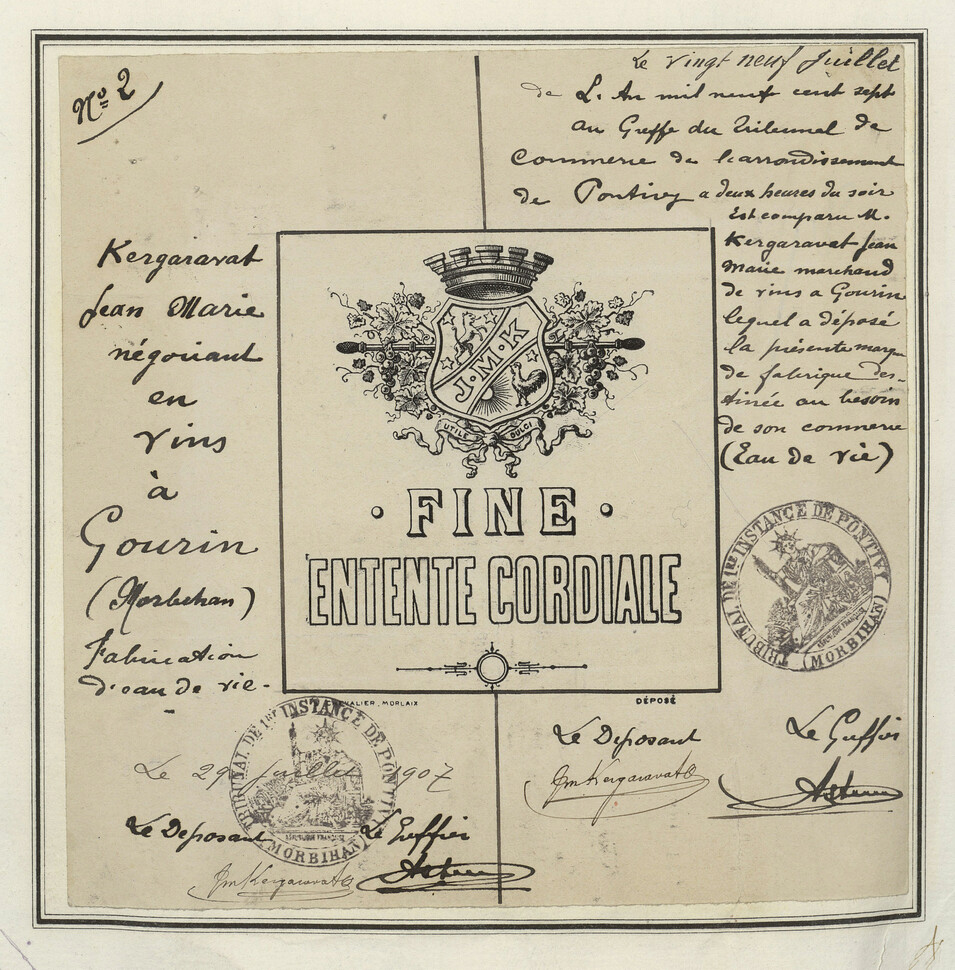 Nº 2
Le vingt neuf Juillet
de L'An mil neuf cent sept
au Greffe du Tribunal de
Commerce de l'arrondissement
de Pontivy a deux heures du soir
Est comparu M.
Kergaravat Jean
Marie marchand
de vins a Gourin
lequel a déposé
la présente marque
de fabrique des-
tinée au besoin
de son commerce
(Eau de vie)
Kergaravat
Jean Marie
négociant
en
vins
à
Gourin
(Morbihan)
Fabrication
d'eau de vie.
J.M.K
UTILE DULCI
· FINE ·
ENTENTE CORDIALE
CHEVALIER, MORLAIX
DÉPOSÉ
TRIBUNAL DE 1RE INSTANCE DE PONTIVY
(MORBIHAN)
Le Deposant
Le Greffier
JmKergaravat
TRIBUNAL DE 1RE INSTANCE DE PONTIVY
(MORBIHAN)
Le 29 Juillet 1907
Le Deposant Le Greffier
JmKergaravat